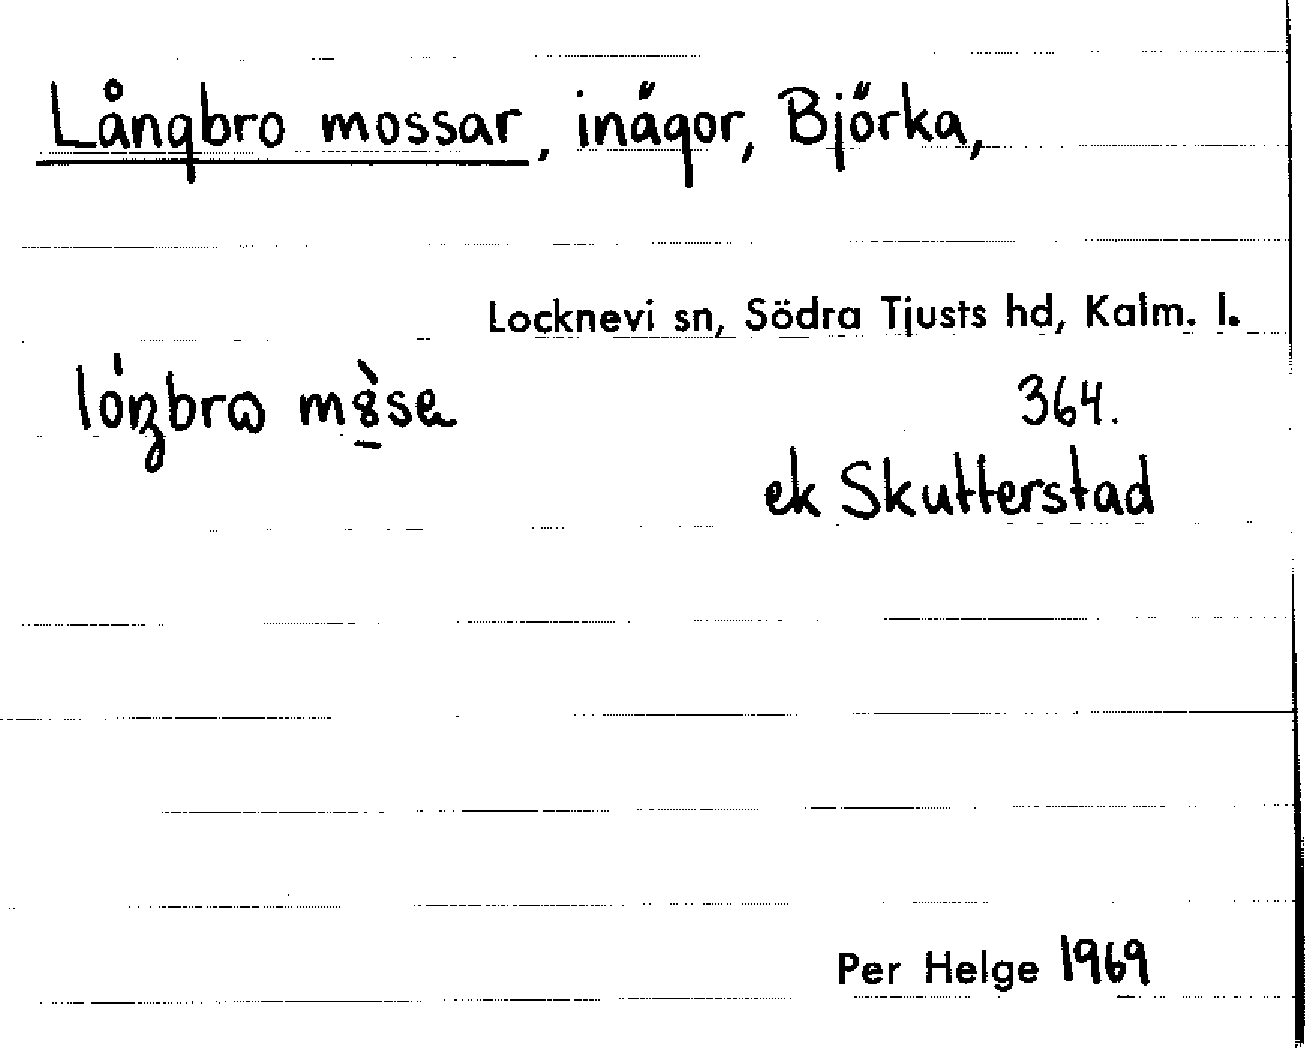 Långbro mossar, inägor, Björka,
Locknevi sn, Södra Tjusts hd, Kalm. l.
364.
ek Skutterstad
Per Helge 1969